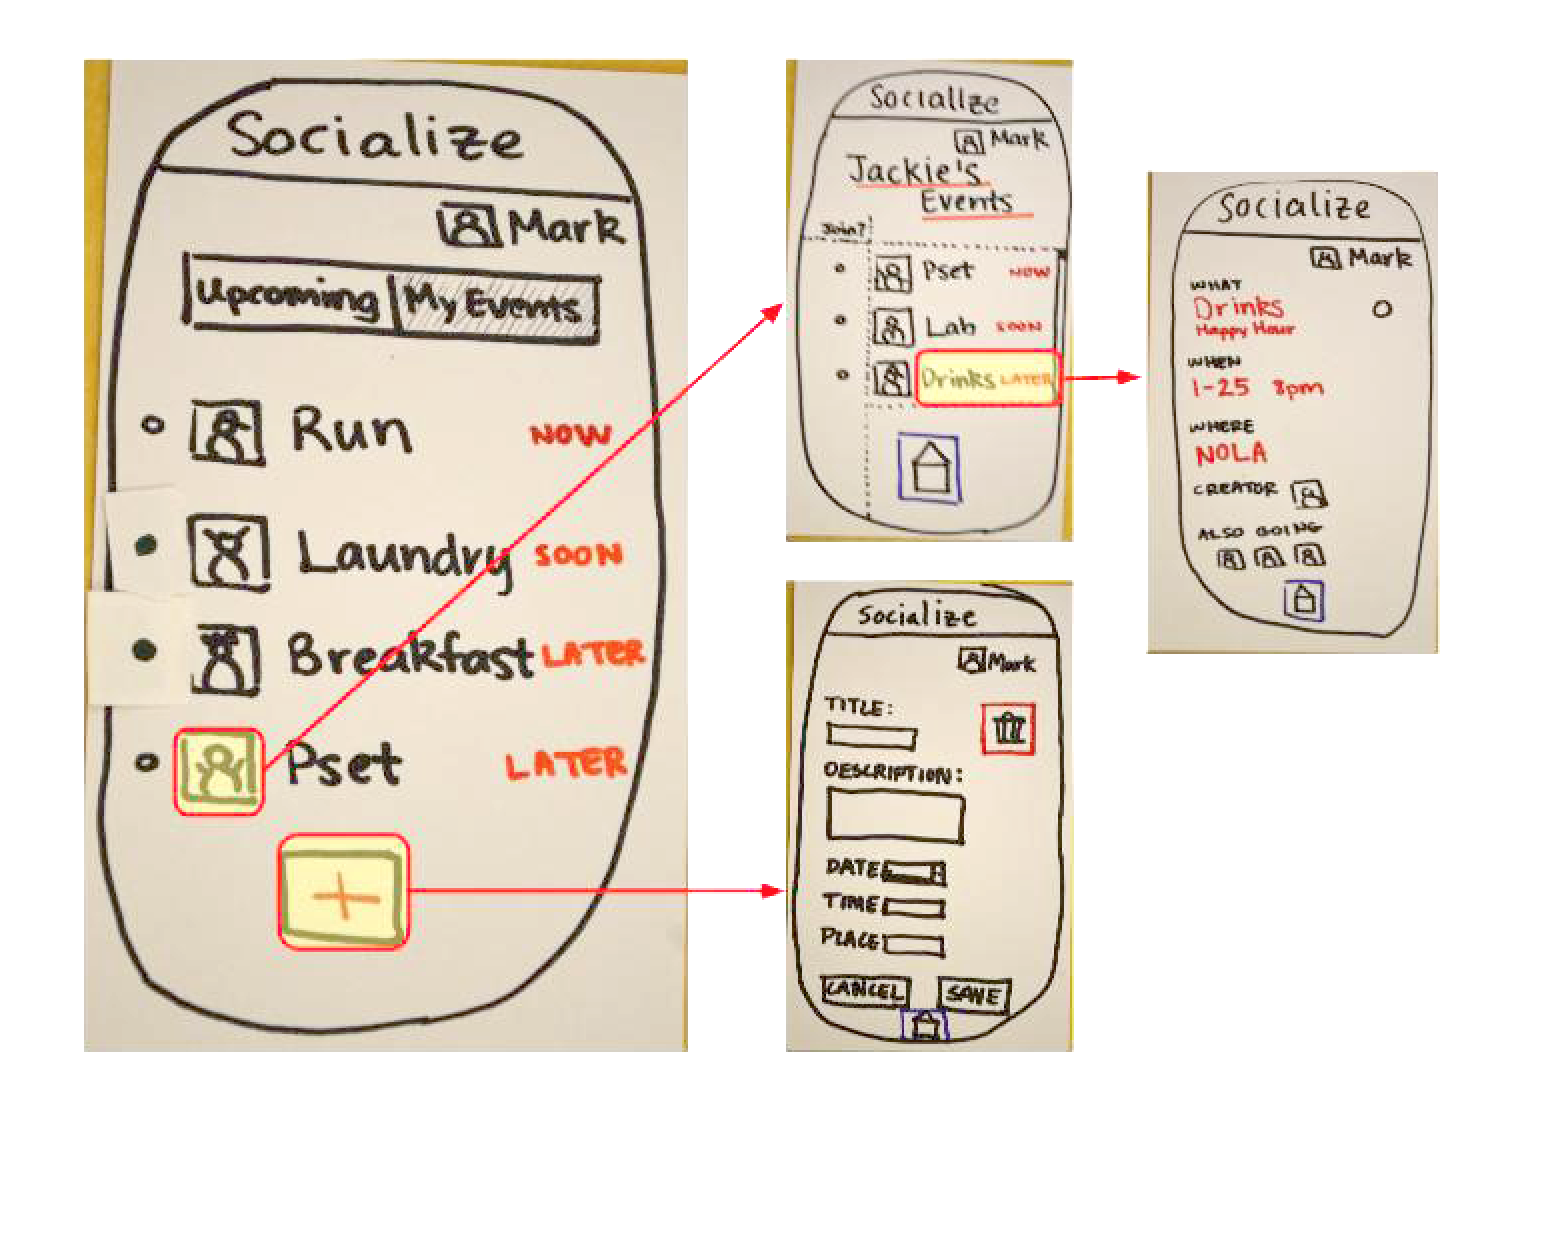 Socialize
Mark
Upcoming My Events
Run NOW
Laundry SOON
Breakfast LATER
Pset LATER
+
Socialize
Mark
Jackie's
Events
Join?
Pset NOW
Lab SOON
Drinks LATER
Socialize
Mark
WHAT
Drinks
Happy Hour
WHEN
1-25 8pm
WHERE
NOLA
CREATOR
ALSO GOING
Socialize
Mark
TITLE:
DESCRIPTION:
DATE
TIME
PLACE
CANCEL SAVE